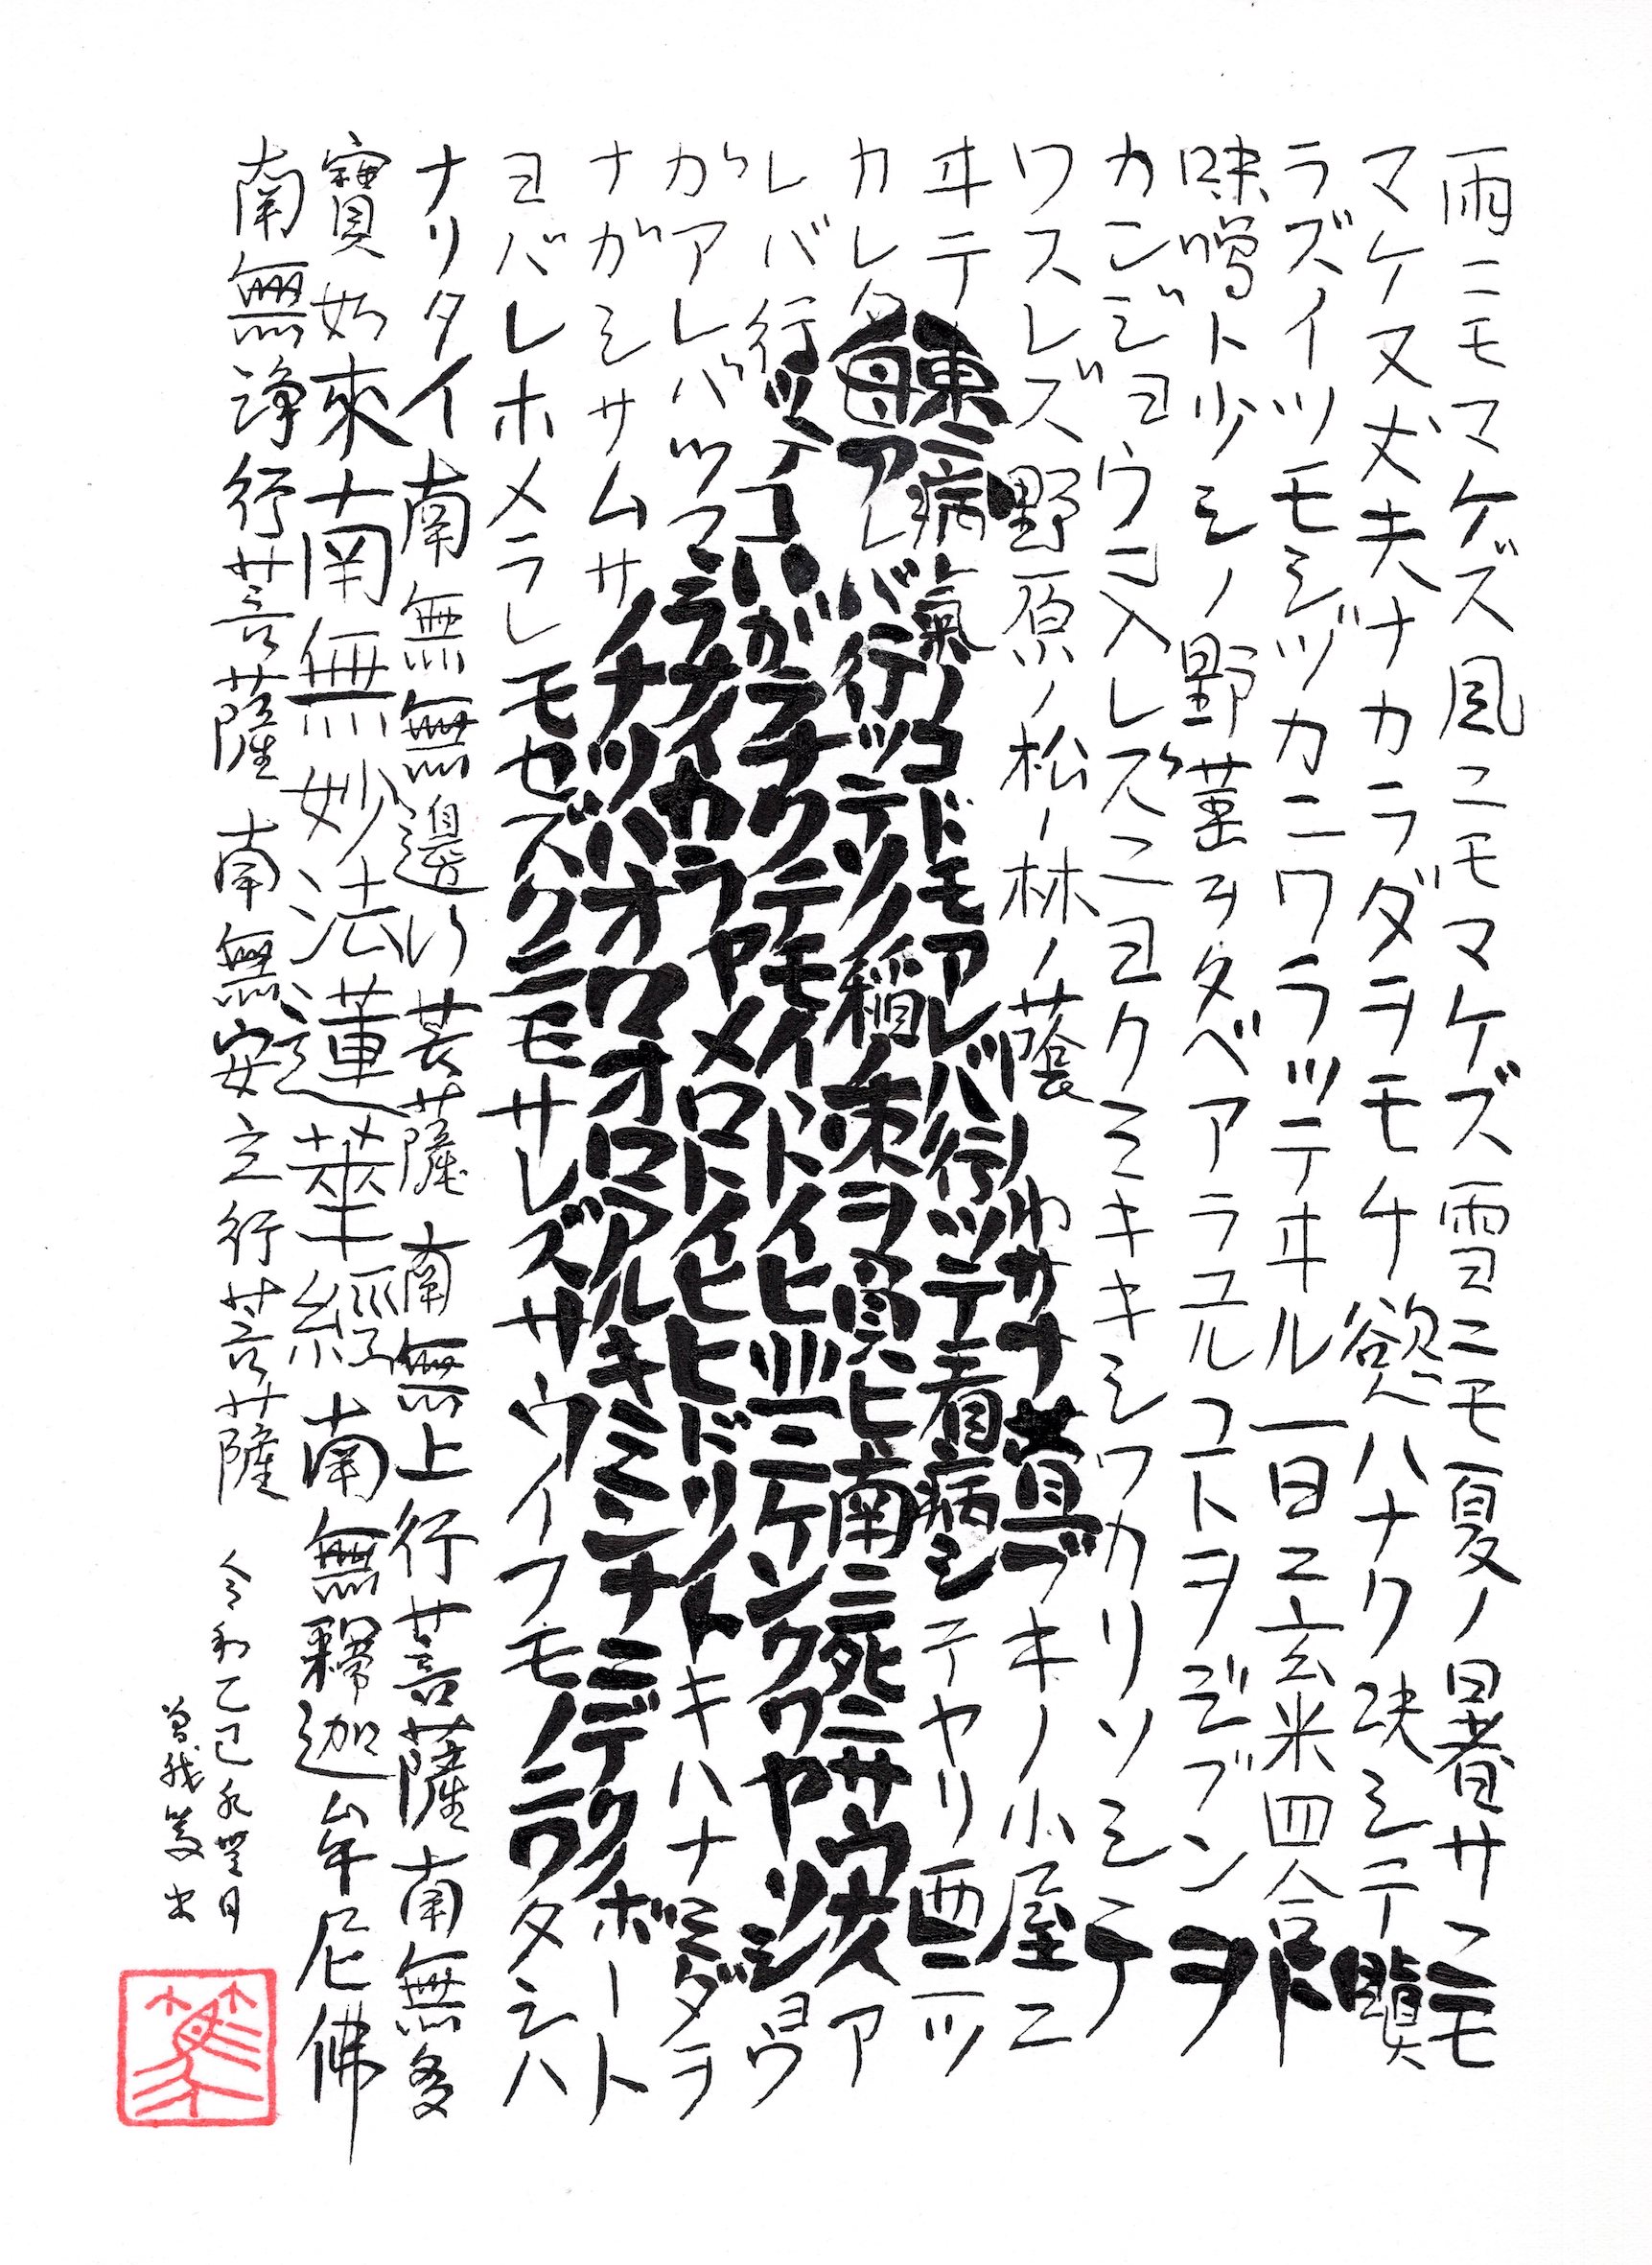 雨ニモマケズ風ニモマケズ雪ニモ夏ノ暑サニモ
マケヌ丈夫ナカラダヲモチ慾ハナク決シテ瞋
ラズイツモシヅカニワラッテヰル一日ニ玄米四合ト
味噌ト少シノ野菜ヲタベアラユルコトヲジブンヲ
カンジョウニ入レズニヨクミキキシワカリソシテ
ワスレズ野原ノ松ノ林ノ蔭ノ小サナ萓ブキノ小屋ニ
ヰテ東ニ病氣ノコドモアレバ行ッテ看病シテヤリ西ニツ
カレタ母アレバ行ッテソノ稲ノ朿ヲ負ヒ南ニ死ニサウナ人ア
レバ行ッテコハガラナクテモイヽトイヒ北ニケンクヮヤソショウ
ガアレバツマラナイカラヤメロトイヒヒドリノトキハナミダヲ
ナガシサムサノナツハオロオロアルキミンナニデクノボート
ヨバレホメラレモセズクニモサレズサウイフモノニワタシハ
ナリタイ南無無邊行菩薩南無上行菩薩南無多
寶如來南無妙法蓮華經南無釋迦牟尼佛
南無浄行菩薩南無安立行菩薩
令和乙巳 月